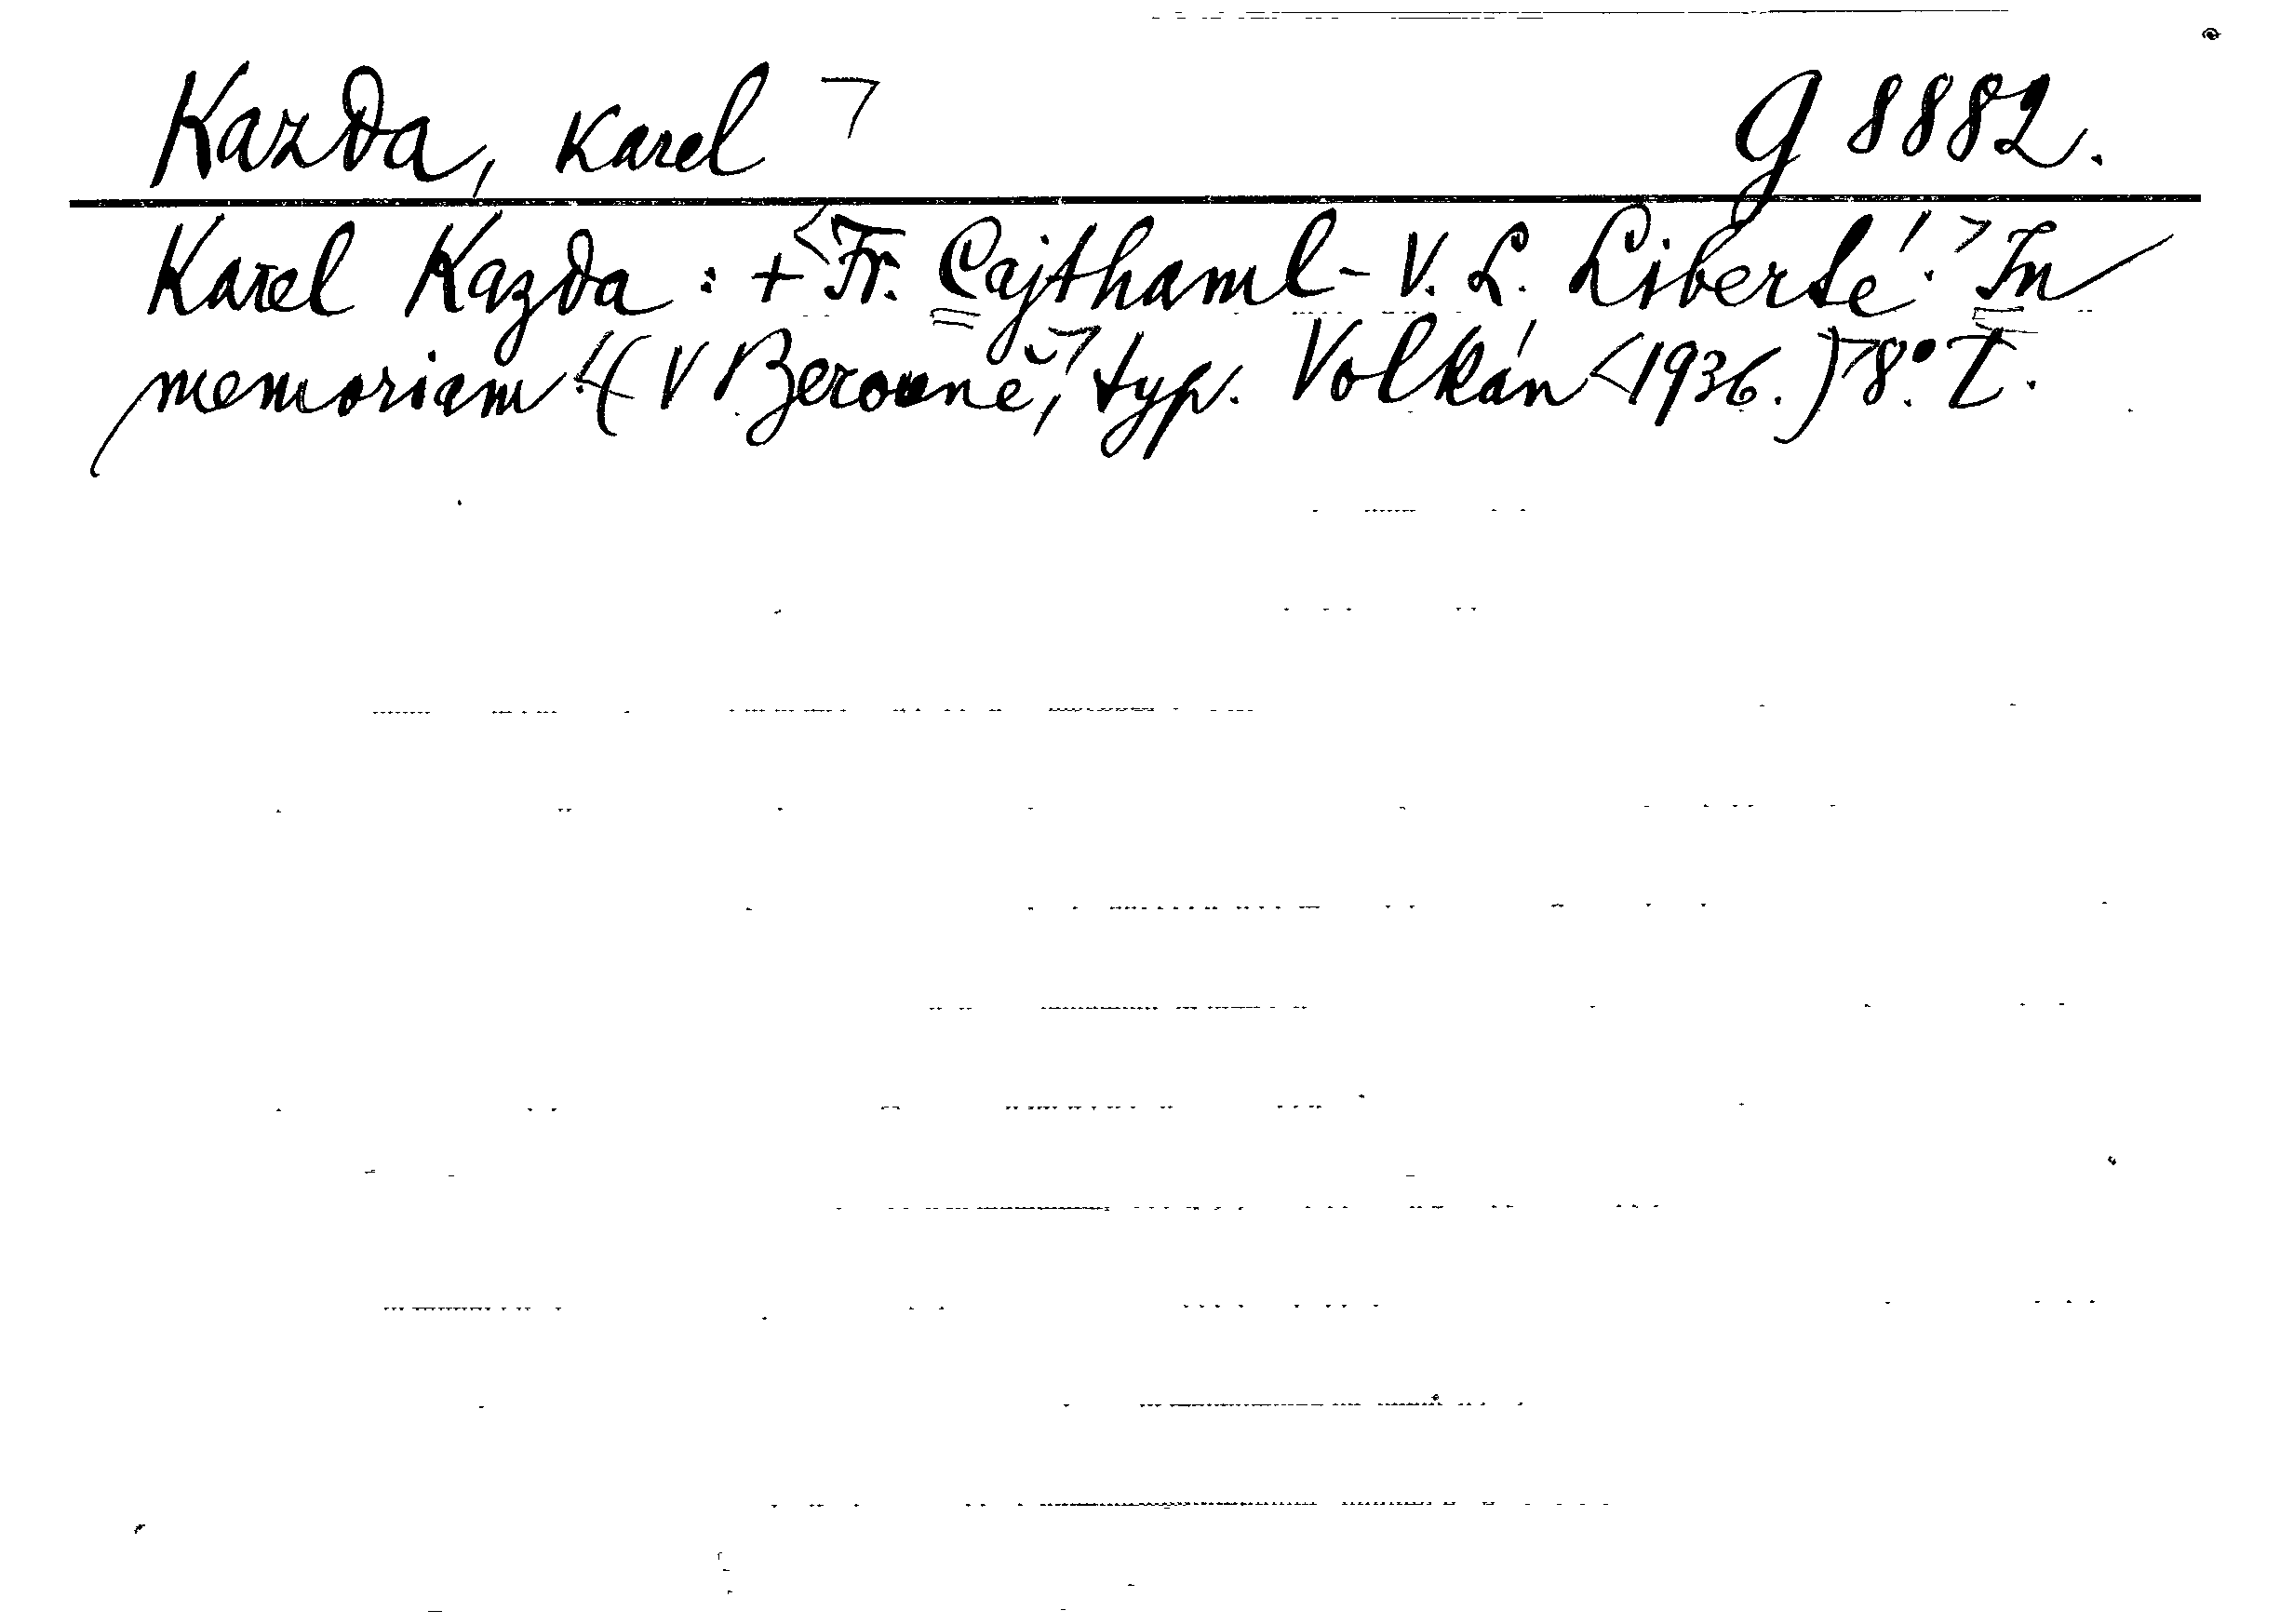 Kazda, Karel ㄱ G 8882.
Karel Kazda : + <Fr. Cajthaml - V. L. Liberté.> In
memoriam. (V Berouně, typ. Volkán <1936.) 8°. I.